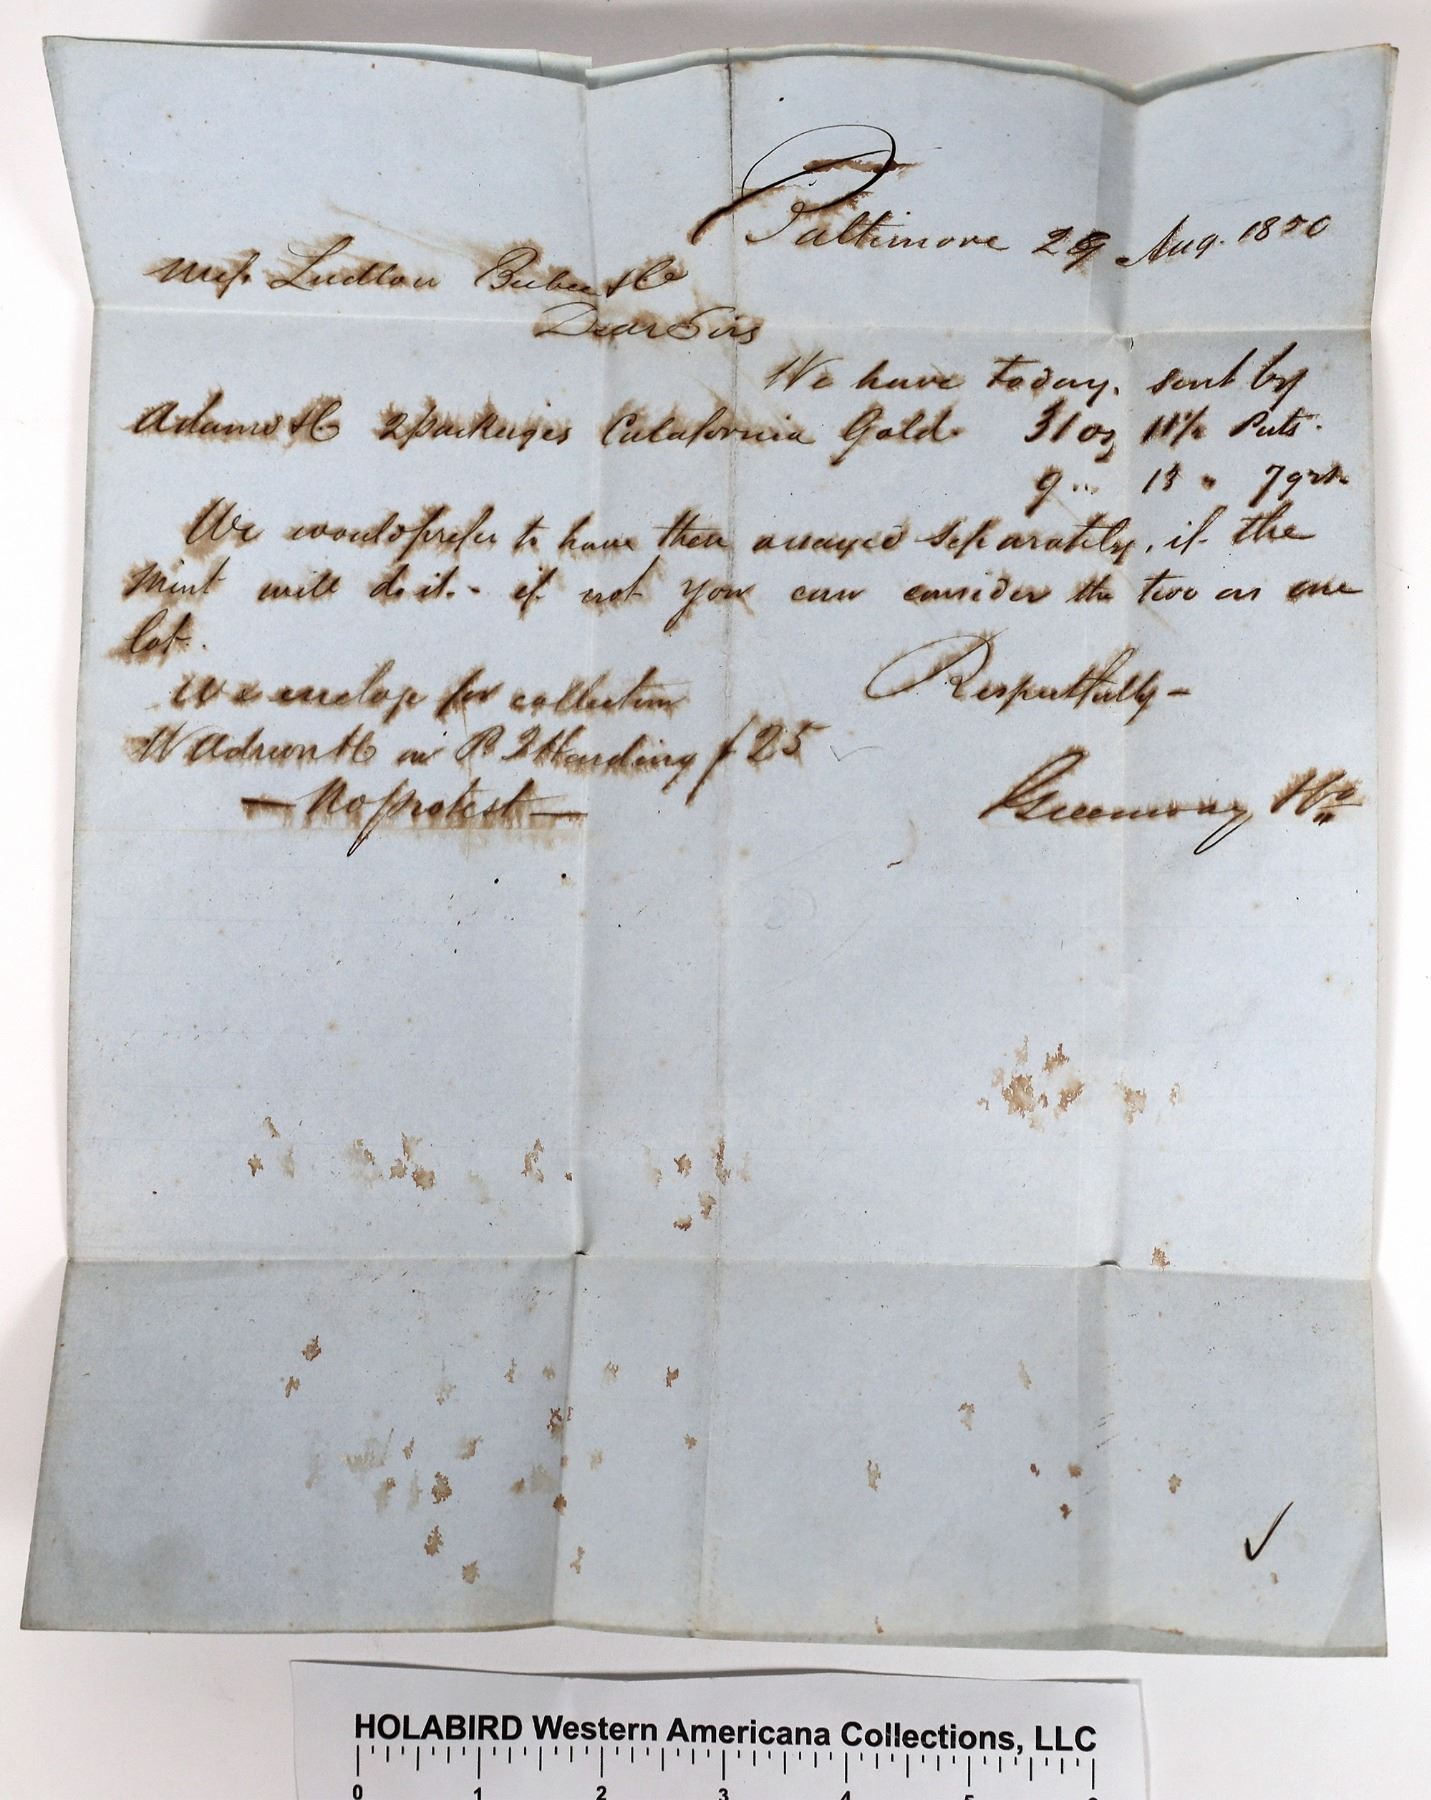 Baltimore 29 Aug. 1850
Mess. Ludlow Beebee & Co
Dear Sirs
We have today, sent by
Adams & Co 2 packages Calafornia Gold 31 oz 11½ Pwts.
9 " 13 " 7 grs
We would prefer to have them assayed seperately, if the
Mint will do it. - if not you can consider the two as one
lot.
We enclose for collection
W Adams & Co on Harding $ 25
— No protest —
Respectfully -
Greenway & Co
HOLABIRD Western Americana Collections, LLC
0 1 2 3 4 5